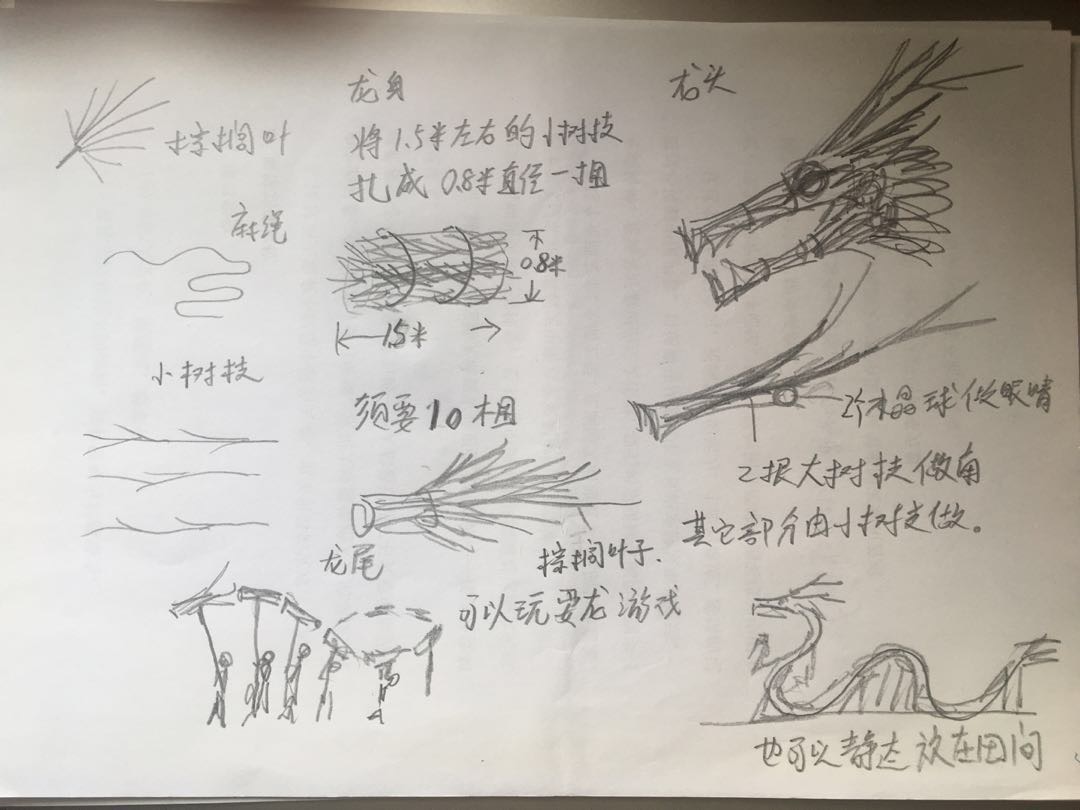 棕榈叶
麻绳
小树枝
龙身
将1.5米左右的小树枝
扎成 0.8米直径一捆
0.8米
1.5米
须要10捆
龙尾
棕榈叶子.
可以玩耍龙游戏
龙头
2个水晶球做眼睛
2根大树枝做角
其它部分由小树枝做。
也可以静态放在田间